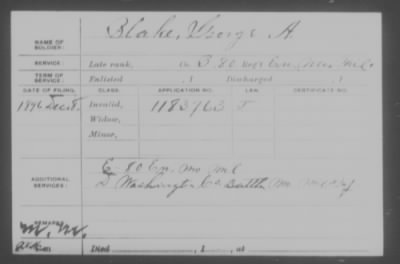 NAME OF SOLDIER: Blake, George A.
SERVICE: Late rank, Co. B, 80 Regt Enr. Mo. Mil.
TERM OF SERVICE: Enlisted , 1 Discharged , 1
DATE OF FILING. CLASS. APPLICATION NO. LAW. CERTIFICATE NO.
1896 Dec. 8. Invalid, 1183763
Widow,
Minor,
ADDITIONAL SERVICES: E. 80 En. Mo Mil
Washington Co. Battln Mo.
REMARKS:
Died , 1 , at